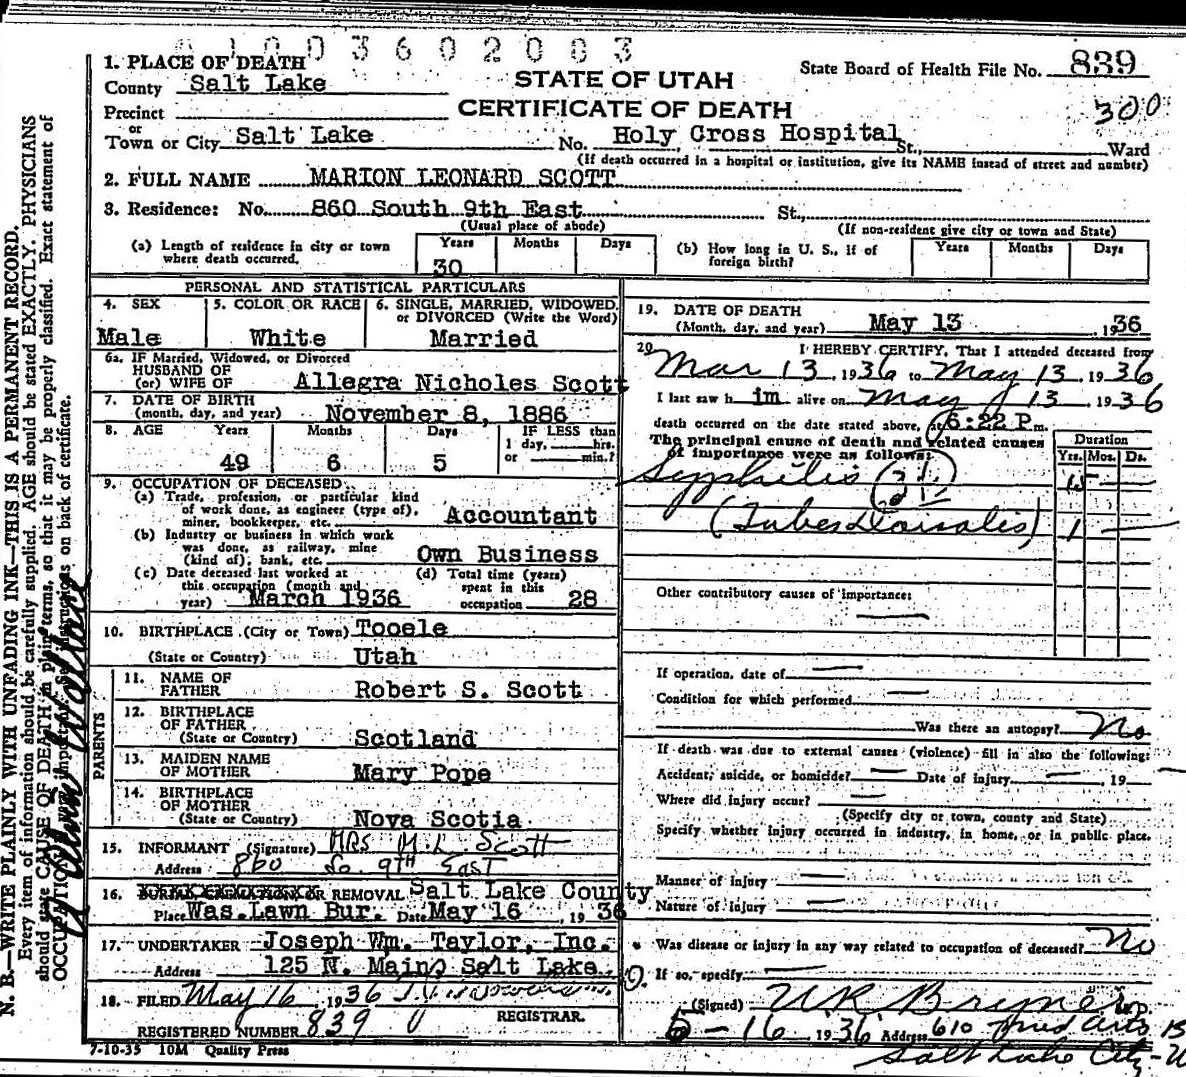 0 1 0 0 3 6 0 2 0 0 3
1. PLACE OF DEATH
County Salt Lake
STATE OF UTAH
CERTIFICATE OF DEATH
State Board of Health File No. 839
300
Precinct
or
Town or City Salt Lake No. Holy Cross Hospital St., Ward
(If death occurred in a hospital or institution, give its NAME instead of street and number)
2. FULL NAME MARION LEONARD SCOTT
3. Residence: No. 860 South 9th East St.,
(Usual place of abode) (If non-resident give city or town and State)
(a) Length of residence in city or town where death occurred. Years 30 Months Days
(b) How long in U. S., if of foreign birth? Years Months Days
PERSONAL AND STATISTICAL PARTICULARS
4. SEX 5. COLOR OR RACE 6. SINGLE, MARRIED, WIDOWED, or DIVORCED (Write the Word)
Male White Married
6a. IF Married, Widowed, or Divorced
HUSBAND OF
(or) WIFE OF Allegra Nicholes Scott
7. DATE OF BIRTH
(month, day, and year) November 8, 1886
8. AGE Years Months Days IF LESS than
1 day, hrs.
or min.?
49 6 5
9. OCCUPATION OF DECEASED
(a) Trade, profession, or particular kind
of work done, as engineer (type of),
miner, bookkeeper, etc. Accountant
(b) Industry or business in which work
was done, as railway, mine
(kind of), bank, etc. Own Business
(c) Date deceased last worked at
this occupation (month and
year) March 1936
(d) Total time (years)
spent in this
occupation 28
10. BIRTHPLACE (City or Town) Tooele
(State or Country) Utah
PARENTS
11. NAME OF
FATHER Robert S. Scott
12. BIRTHPLACE
OF FATHER
(State or Country) Scotland
13. MAIDEN NAME
OF MOTHER Mary Pope
14. BIRTHPLACE
OF MOTHER
(State or Country) Nova Scotia
15. INFORMANT (Signature) MRS M. L. Scott
Address 860 So. 9TH EAST
16. BURIAL, CREMATION, OR REMOVAL Salt Lake County
Place Was. Lawn Bur. Date May 16, 1936
17. UNDERTAKER Joseph Wm. Taylor, Inc.
Address 125 N. Main, Salt Lake
18. FILED May 16, 1936
REGISTRAR.
REGISTERED NUMBER 839
7-10-35 10M Quality Press
19. DATE OF DEATH
(Month, day, and year) May 13, 1936
20. I HEREBY CERTIFY, That I attended deceased from
Mar 13, 1936 to May 13, 1936
I last saw h im alive on May 13 1936
death occurred on the date stated above, at 6:22 P m.
The principal cause of death and related causes
of importance were as follows:
Duration
Yrs. Mos. Ds.
Syphilis 15
(Tabes Dorsalis) 1
Other contributory causes of importance:
If operation, date of
Condition for which performed
Was there an autopsy? No
If death was due to external causes (violence) fill in also the following:
Accident, suicide, or homicide? Date of injury 19
Where did injury occur?
(Specify city or town, county and State)
Specify whether injury occurred in industry, in home, or in public place.
Manner of injury
Nature of injury
Was disease or injury in any way related to occupation of deceased? No
If so, specify
(Signed) M.D.
5-16 1936 Address 610
Salt Lake City-U
N. B.—WRITE PLAINLY WITH UNFADING INK—THIS IS A PERMANENT RECORD.
Every item of information should be carefully supplied. AGE should be stated EXACTLY. PHYSICIANS
should state CAUSE OF DEATH in plain terms, so that it may be properly classified. Exact statement of
OCCUPATION is very important. See instructions on back of certificate.